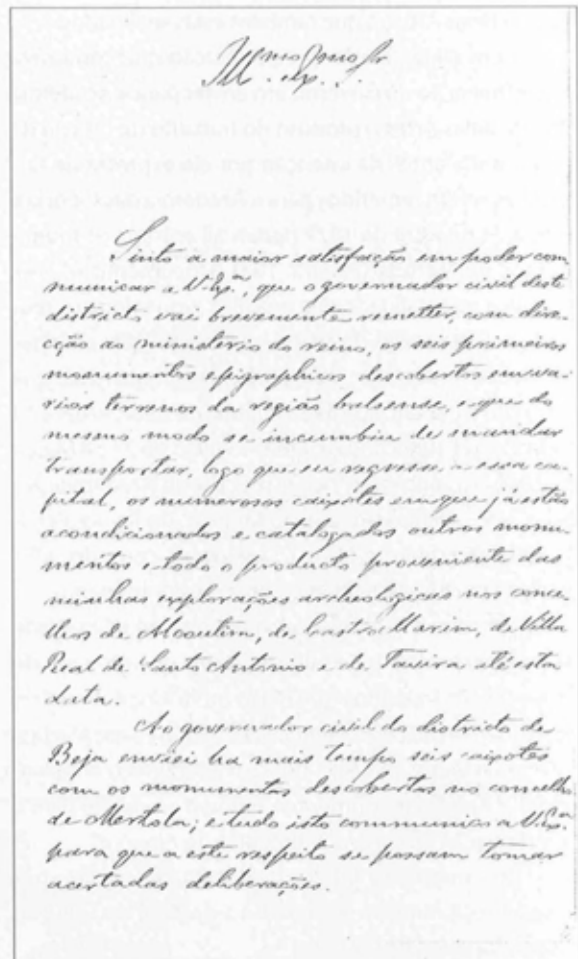 Illmo Exmo Sr.
Sinto a maior satisfação em poder com
municar a V. Exa., que o governador civil deste
districto vai brevemente remetter, com direc
ção ao ministério do reino, os seis primeiros
monumentos epigraphicos descobertos em va
rios terrenos da região balsense, e que do
mesmo modo se incumbiu de mandar
transportar, logo que eu regresse a essa ca
pital, os numerosos caixotes em que já estão
acondicionados e catalogados outros monu
mentos e todo o producto proveniente das
minhas explorações archeologicas nos conce
lhos de Alcoutim, de Castro Marim, de Villa
Real de Santo Antonio e de Tavira até esta
data.
Ao governador civil do districto de
Beja enviei ha mais tempo seis caixotes
com os monumentos descobertos no concelho
de Mertola; e tudo isto communico a V. Exa.
para que a este respeito se possam tomar
acertadas deliberações.